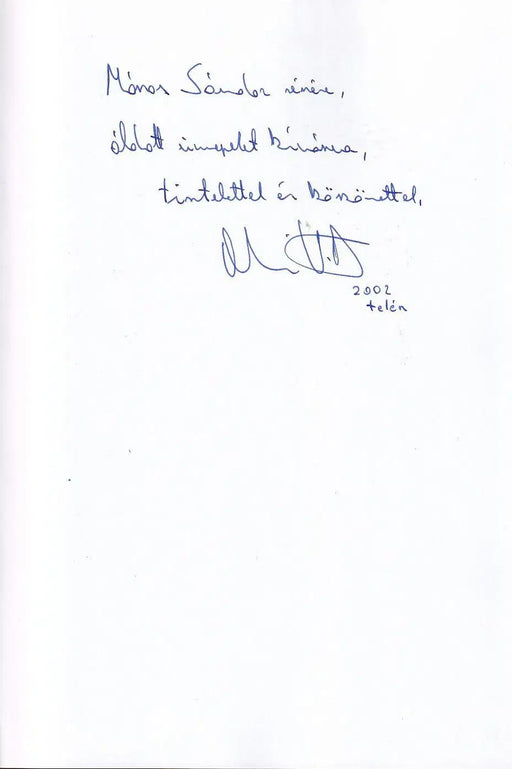 Mónos Sándor részére,
áldott ünnepeket kívánva,
tisztelettel és köszönettel,
2002
telén